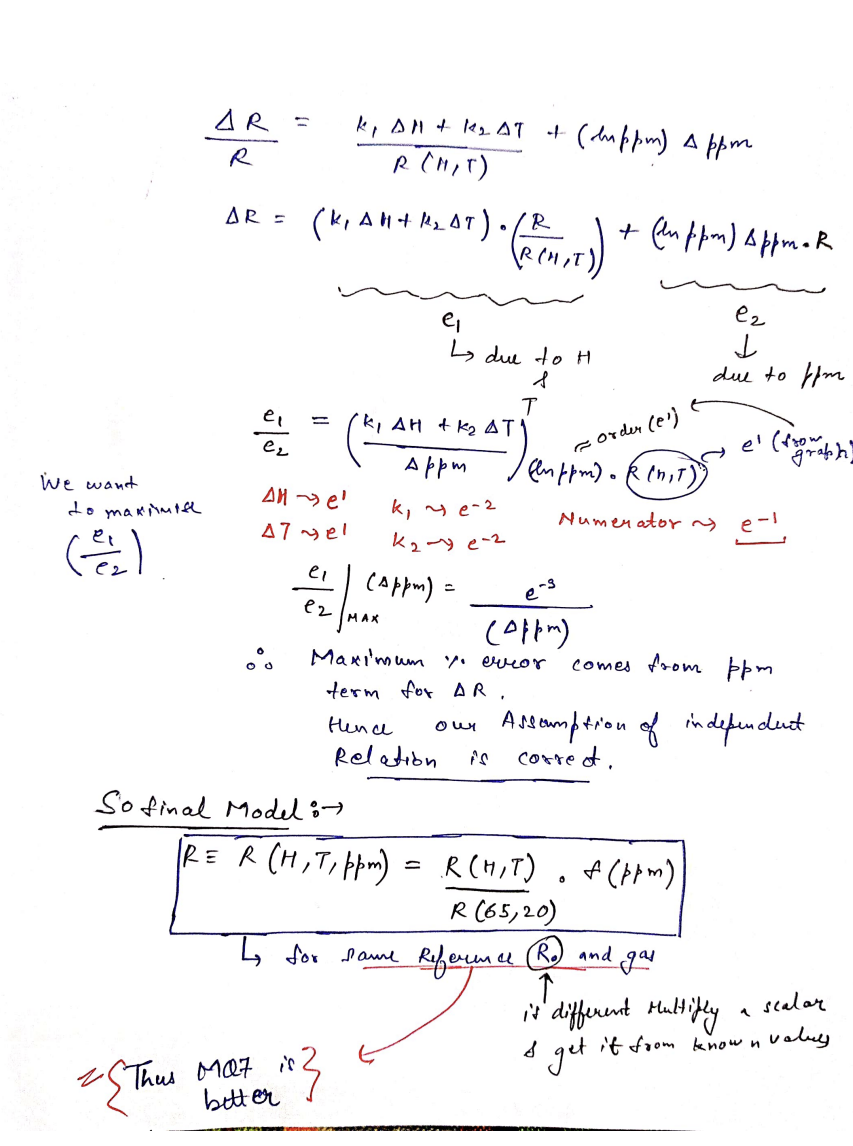 ΔR/R = (k₁ ΔH + k₂ ΔT)/R(H,T) + (ln ppm) Δ ppm
ΔR = (k₁ ΔH + k₂ ΔT) · (R/R(H,T)) + (ln ppm) Δppm · R
e₁ e₂
↳ due to H & T ↓ due to ppm
e₁/e₂ = ((k₁ ΔH + k₂ ΔT)/Δppm) (ln ppm) · R(H,T) ≈ order (e¹) → e¹ (from graph)
We want to maximise (e₁/e₂)
ΔH ⇝ e¹ k₁ ⇝ e-2 Numerator ⇝ e-1
ΔT ⇝ e¹ k₂ ⇝ e-2
e₁/e₂ |MAX (Δppm) = e-3/(Δppm)
∴ Maximum % error comes from ppm
term for ΔR.
Hence our Assumption of independent
Relation is correct.
So final Model :→
R ≡ R (H,T,ppm) = R(H,T)/R(65,20) . f(ppm)
↳ for same Reference R₀ and gas
↑
is different Multiply a scalar
& get it from known values
{Thus MQ7 is
better}